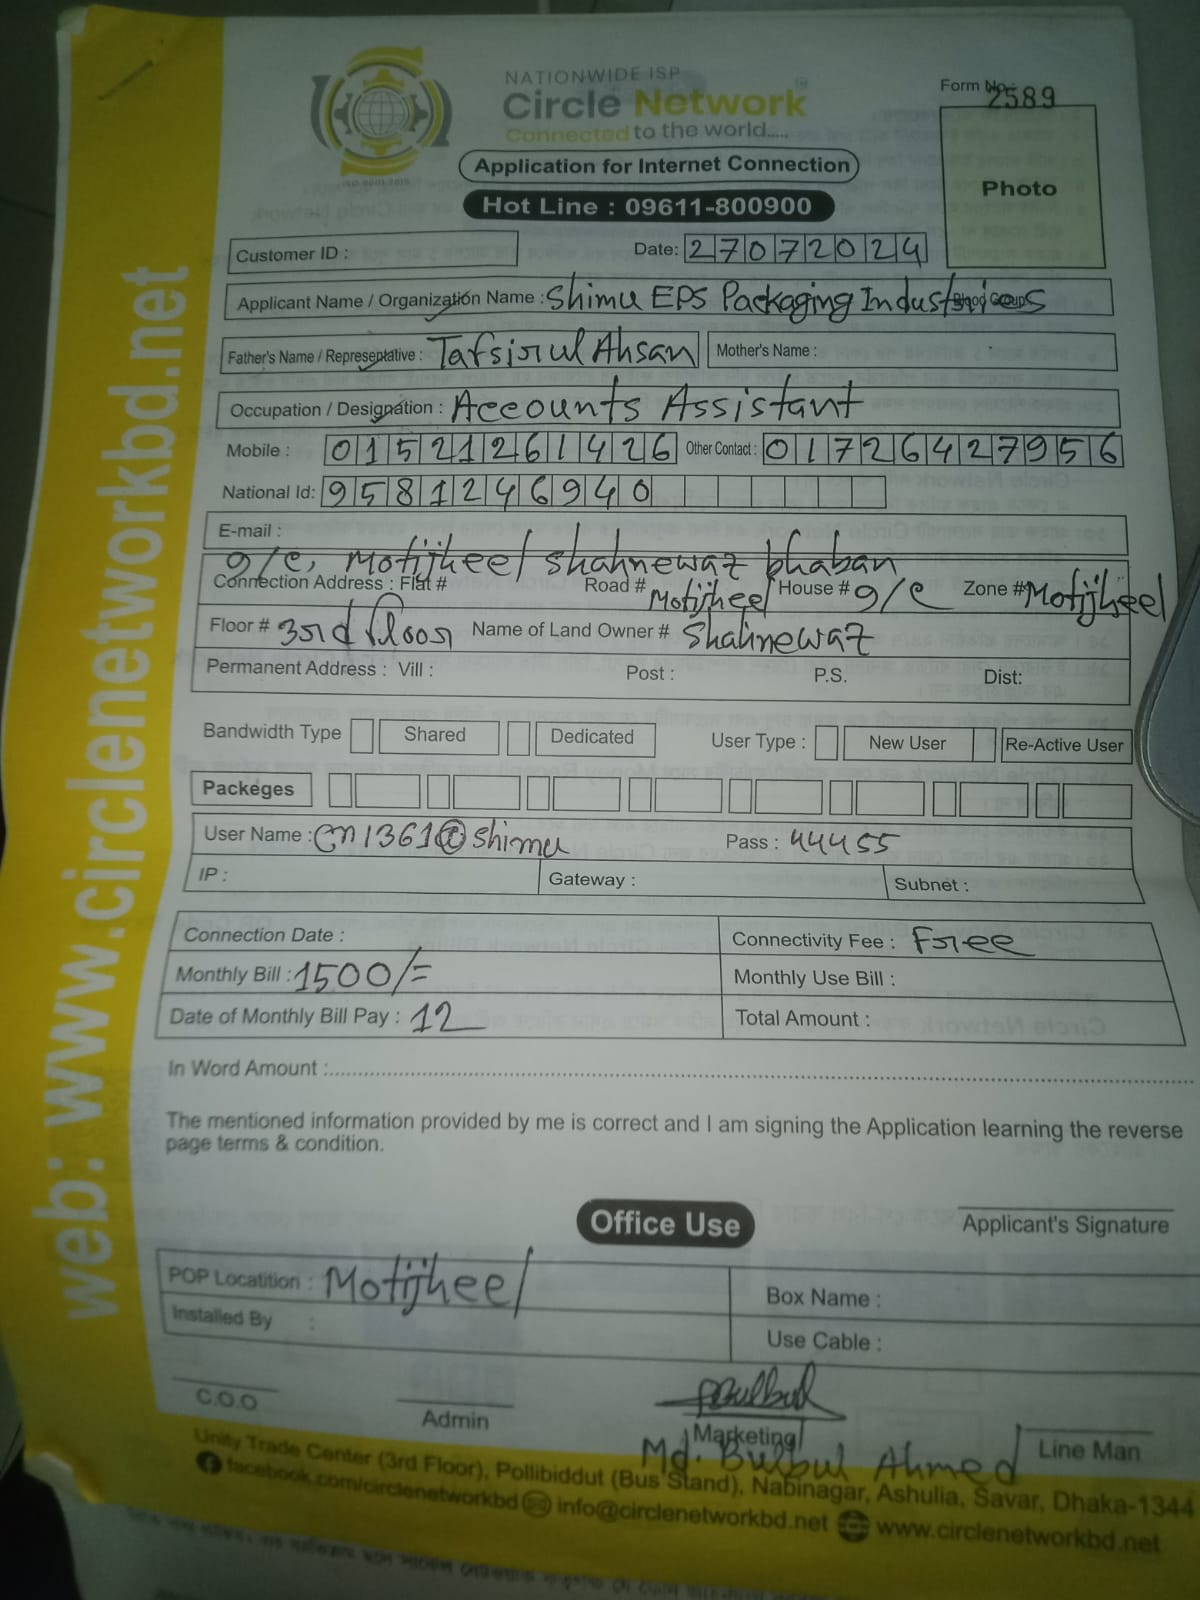 NATIONWIDE ISP
Circle Network
Connected to the world.....
ISO 9001:2015
Form No. 2589
Application for Internet Connection
Photo
Hot Line : 09611-800900
Customer ID :
Date: 27072024
Applicant Name / Organization Name : Shimu EPS Packaging Industries Blood Group
Father's Name / Representative : Tafsirul Ahsan Mother's Name :
Occupation / Designation : Accounts Assistant
Mobile : 01521261426 Other Contact : 01726427956
National Id: 9581246940
E-mail :
9/E, Motijheel Shahnewaz bhaban
Connection Address : Flat # Road # Motijheel House # 9/E Zone # Motijheel
Floor # 3rd floor Name of Land Owner # Shahnewaz
Permanent Address : Vill : Post : P.S. Dist:
Bandwidth Type Shared Dedicated User Type : New User Re-Active User
Packeges
User Name : cn1361@shimu Pass : 44455
IP : Gateway : Subnet :
Connection Date : Connectivity Fee : Free
Monthly Bill : 1500/= Monthly Use Bill :
Date of Monthly Bill Pay : 12 Total Amount :
In Word Amount :
The mentioned information provided by me is correct and I am signing the Application learning the reverse
page terms & condition.
Applicant's Signature
Office Use
POP Locatition : Motijheel Box Name :
Installed By : Use Cable :
Bulbul
C.O.O Admin Marketing Line Man
Md. Bulbul Ahmed
Unity Trade Center (3rd Floor), Pollibiddut (Bus Stand), Nabinagar, Ashulia, Savar, Dhaka-1344
facebook.com/circlenetworkbd info@circlenetworkbd.net www.circlenetworkbd.net
web: www.circlenetworkbd.net